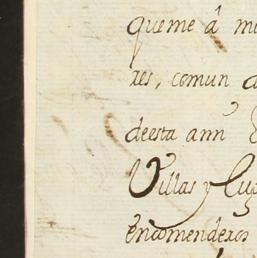 queme â mi
res, comun a
deesta ann
Villas y Lug
encomenderos